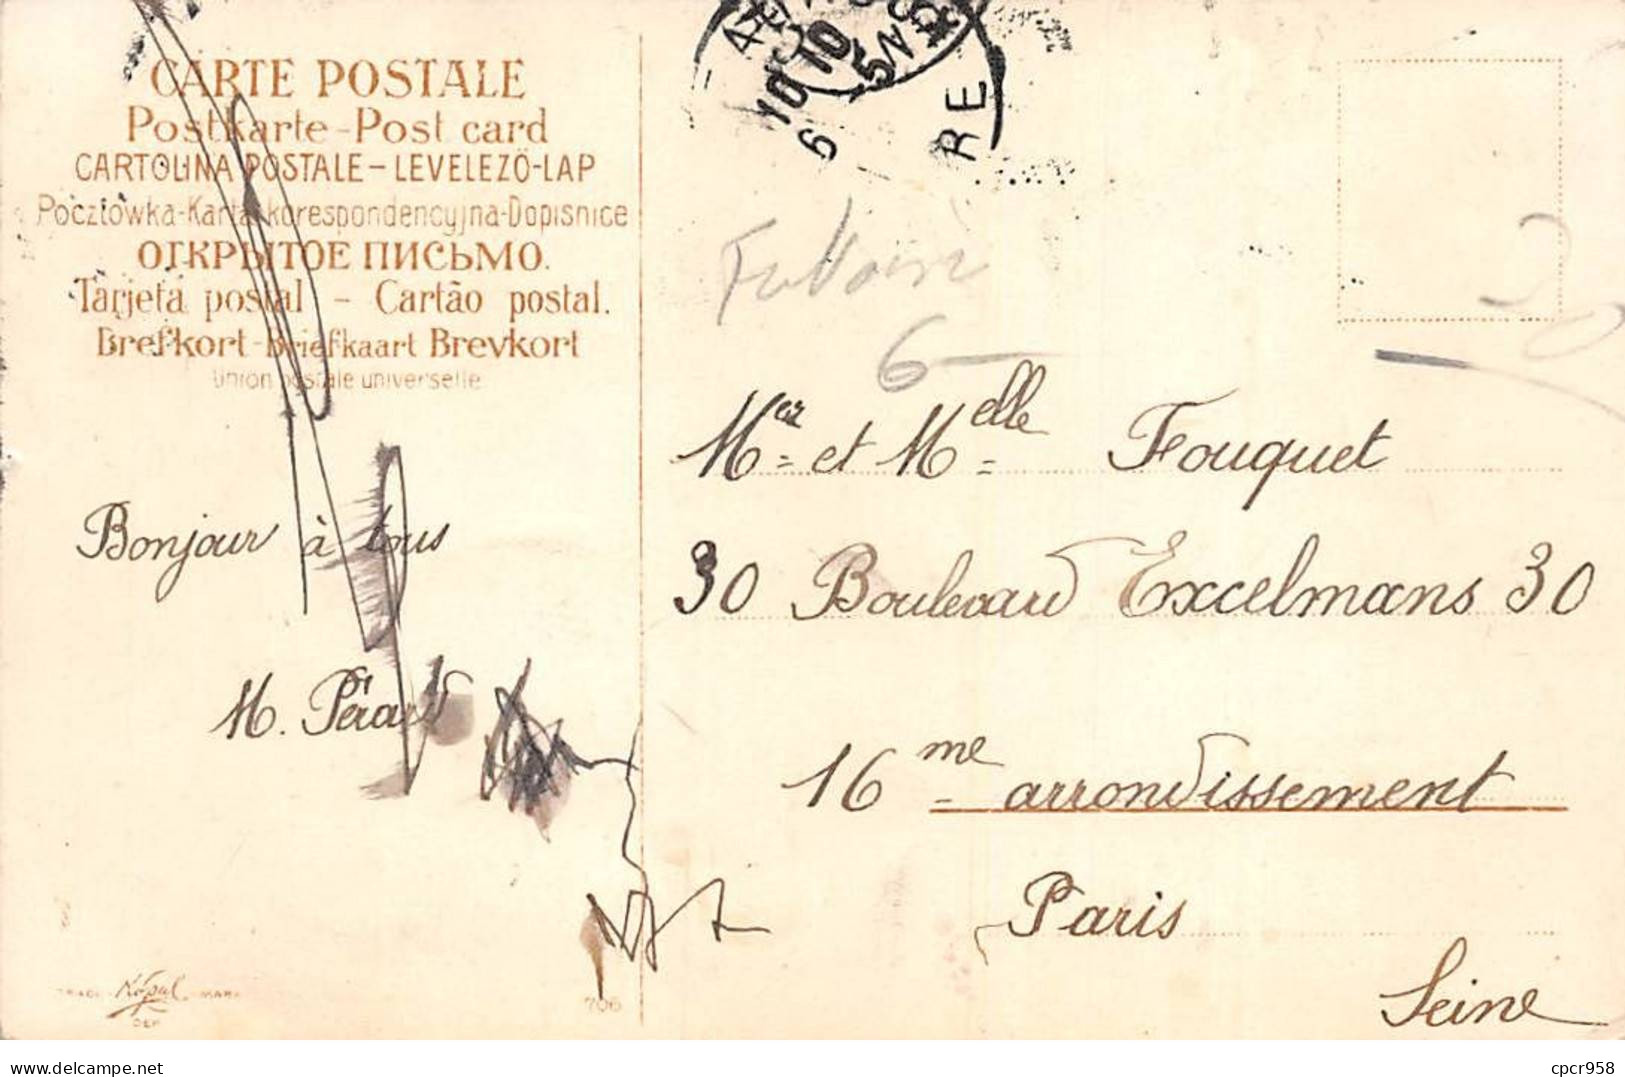 CARTE POSTALE
Postkarte - Post card
CARTOLINA POSTALE - LEVELEZÖ-LAP
Pocztówka - Karta korespondencyjna - Dopisnice
ОТКРЫТОЕ ПИСЬМО.
Tarjeta postal - Cartão postal.
Brefkort - Briefkaart Brevkort
Union postale universelle
Bonjour à tous
M. Pérard
706
DEP.
10 10
6
RE
6
Mr et Melle Fouquet
30 Boulevard Excelmans 30
16me arrondissement
Paris
Seine
Delcampe.net
cpcr958